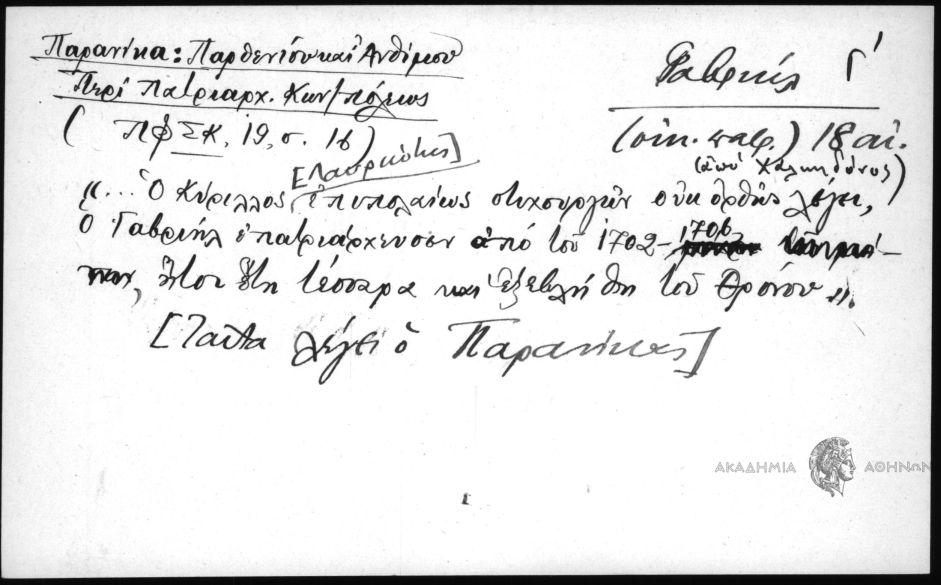 Παρανίκα: Παρθενίου και Ανθίμου
Περί πατριαρχ. Κων/πόλεως
(ΠΦΣΚ, 19, σ. 16)
Γαβριήλ Γ΄
(οικ. πατρ.) 18 αἰ.
(ἀπό Χαλκηδόνος)
[Λαυριώτης]
«... Ὁ Κύριλλος, ἐπιπολαίως στιχουργῶν οὐκ ὀρθῶς λέγει,
ὁ Γαβριήλ ἐπατριάρχευσεν ἀπό τοῦ 1702-1706
ἤτοι ἔτη τέσσαρα καί ἐξεβλήθη τοῦ Θρόνου».
[Ταῦτα λέγει ὁ Παρανίκας]
ΑΚΑΔΗΜΙΑ ΑΘΗΝΩΝ